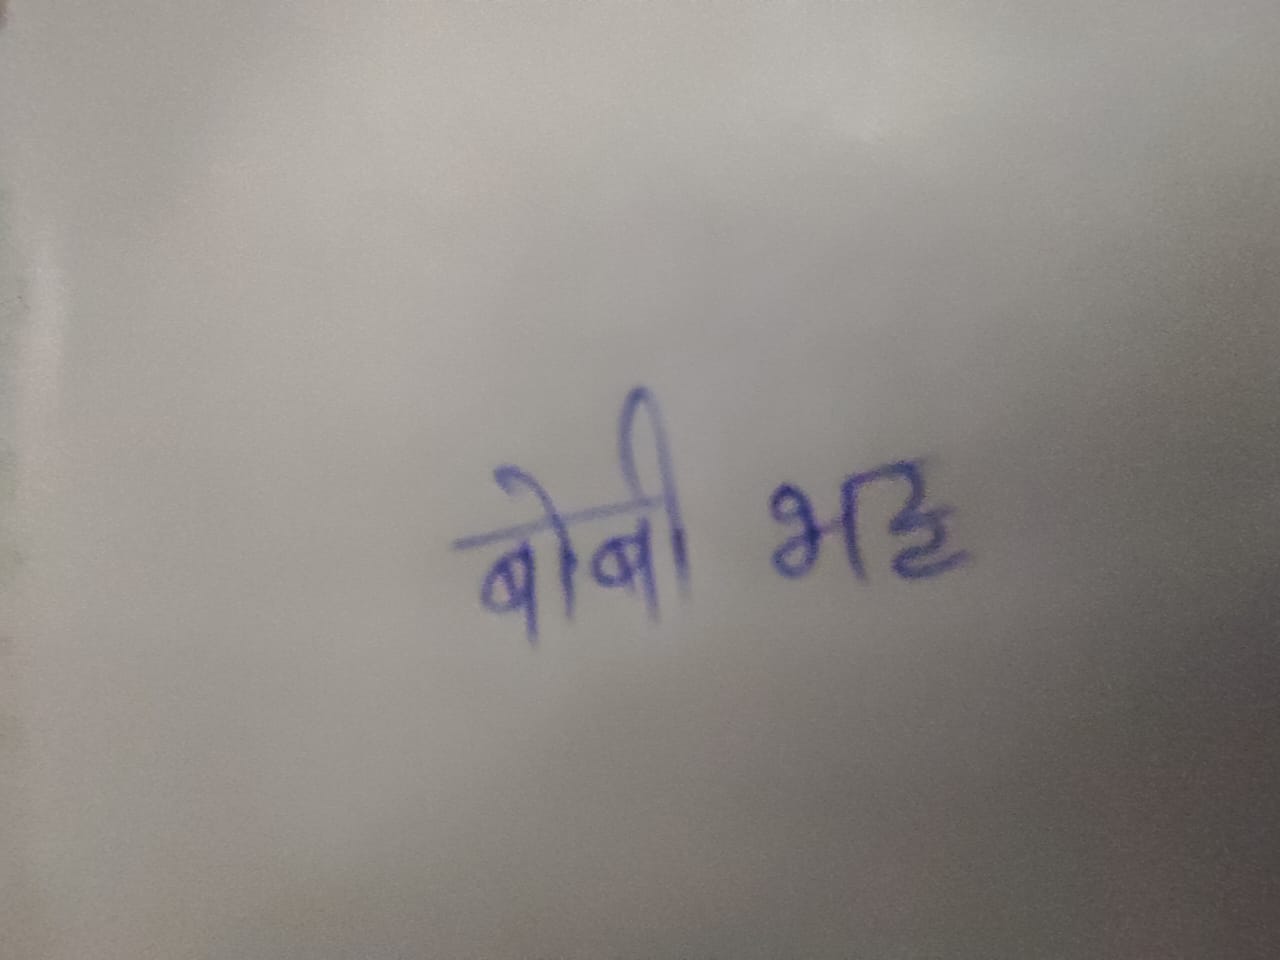 बोबी भट्ट